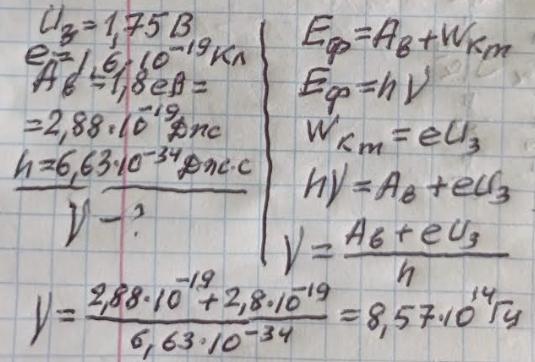 U₃ = 1,75 В
e = 1,6·10⁻¹⁹ Кл
Aв = 1,8 еА =
= 2,88·10⁻¹⁹ Дж
h = 6,63·10⁻³⁴ Дж·с
ν – ?
Eф = Aв + Wкт
Eф = hν
Wкт = eU₃
hν = Aв + eU₃
ν = (Aв + eU₃) / h
ν = (2,88·10⁻¹⁹ + 2,8·10⁻¹⁹) / (6,63·10⁻³⁴) = 8,57·10¹⁴ Гц